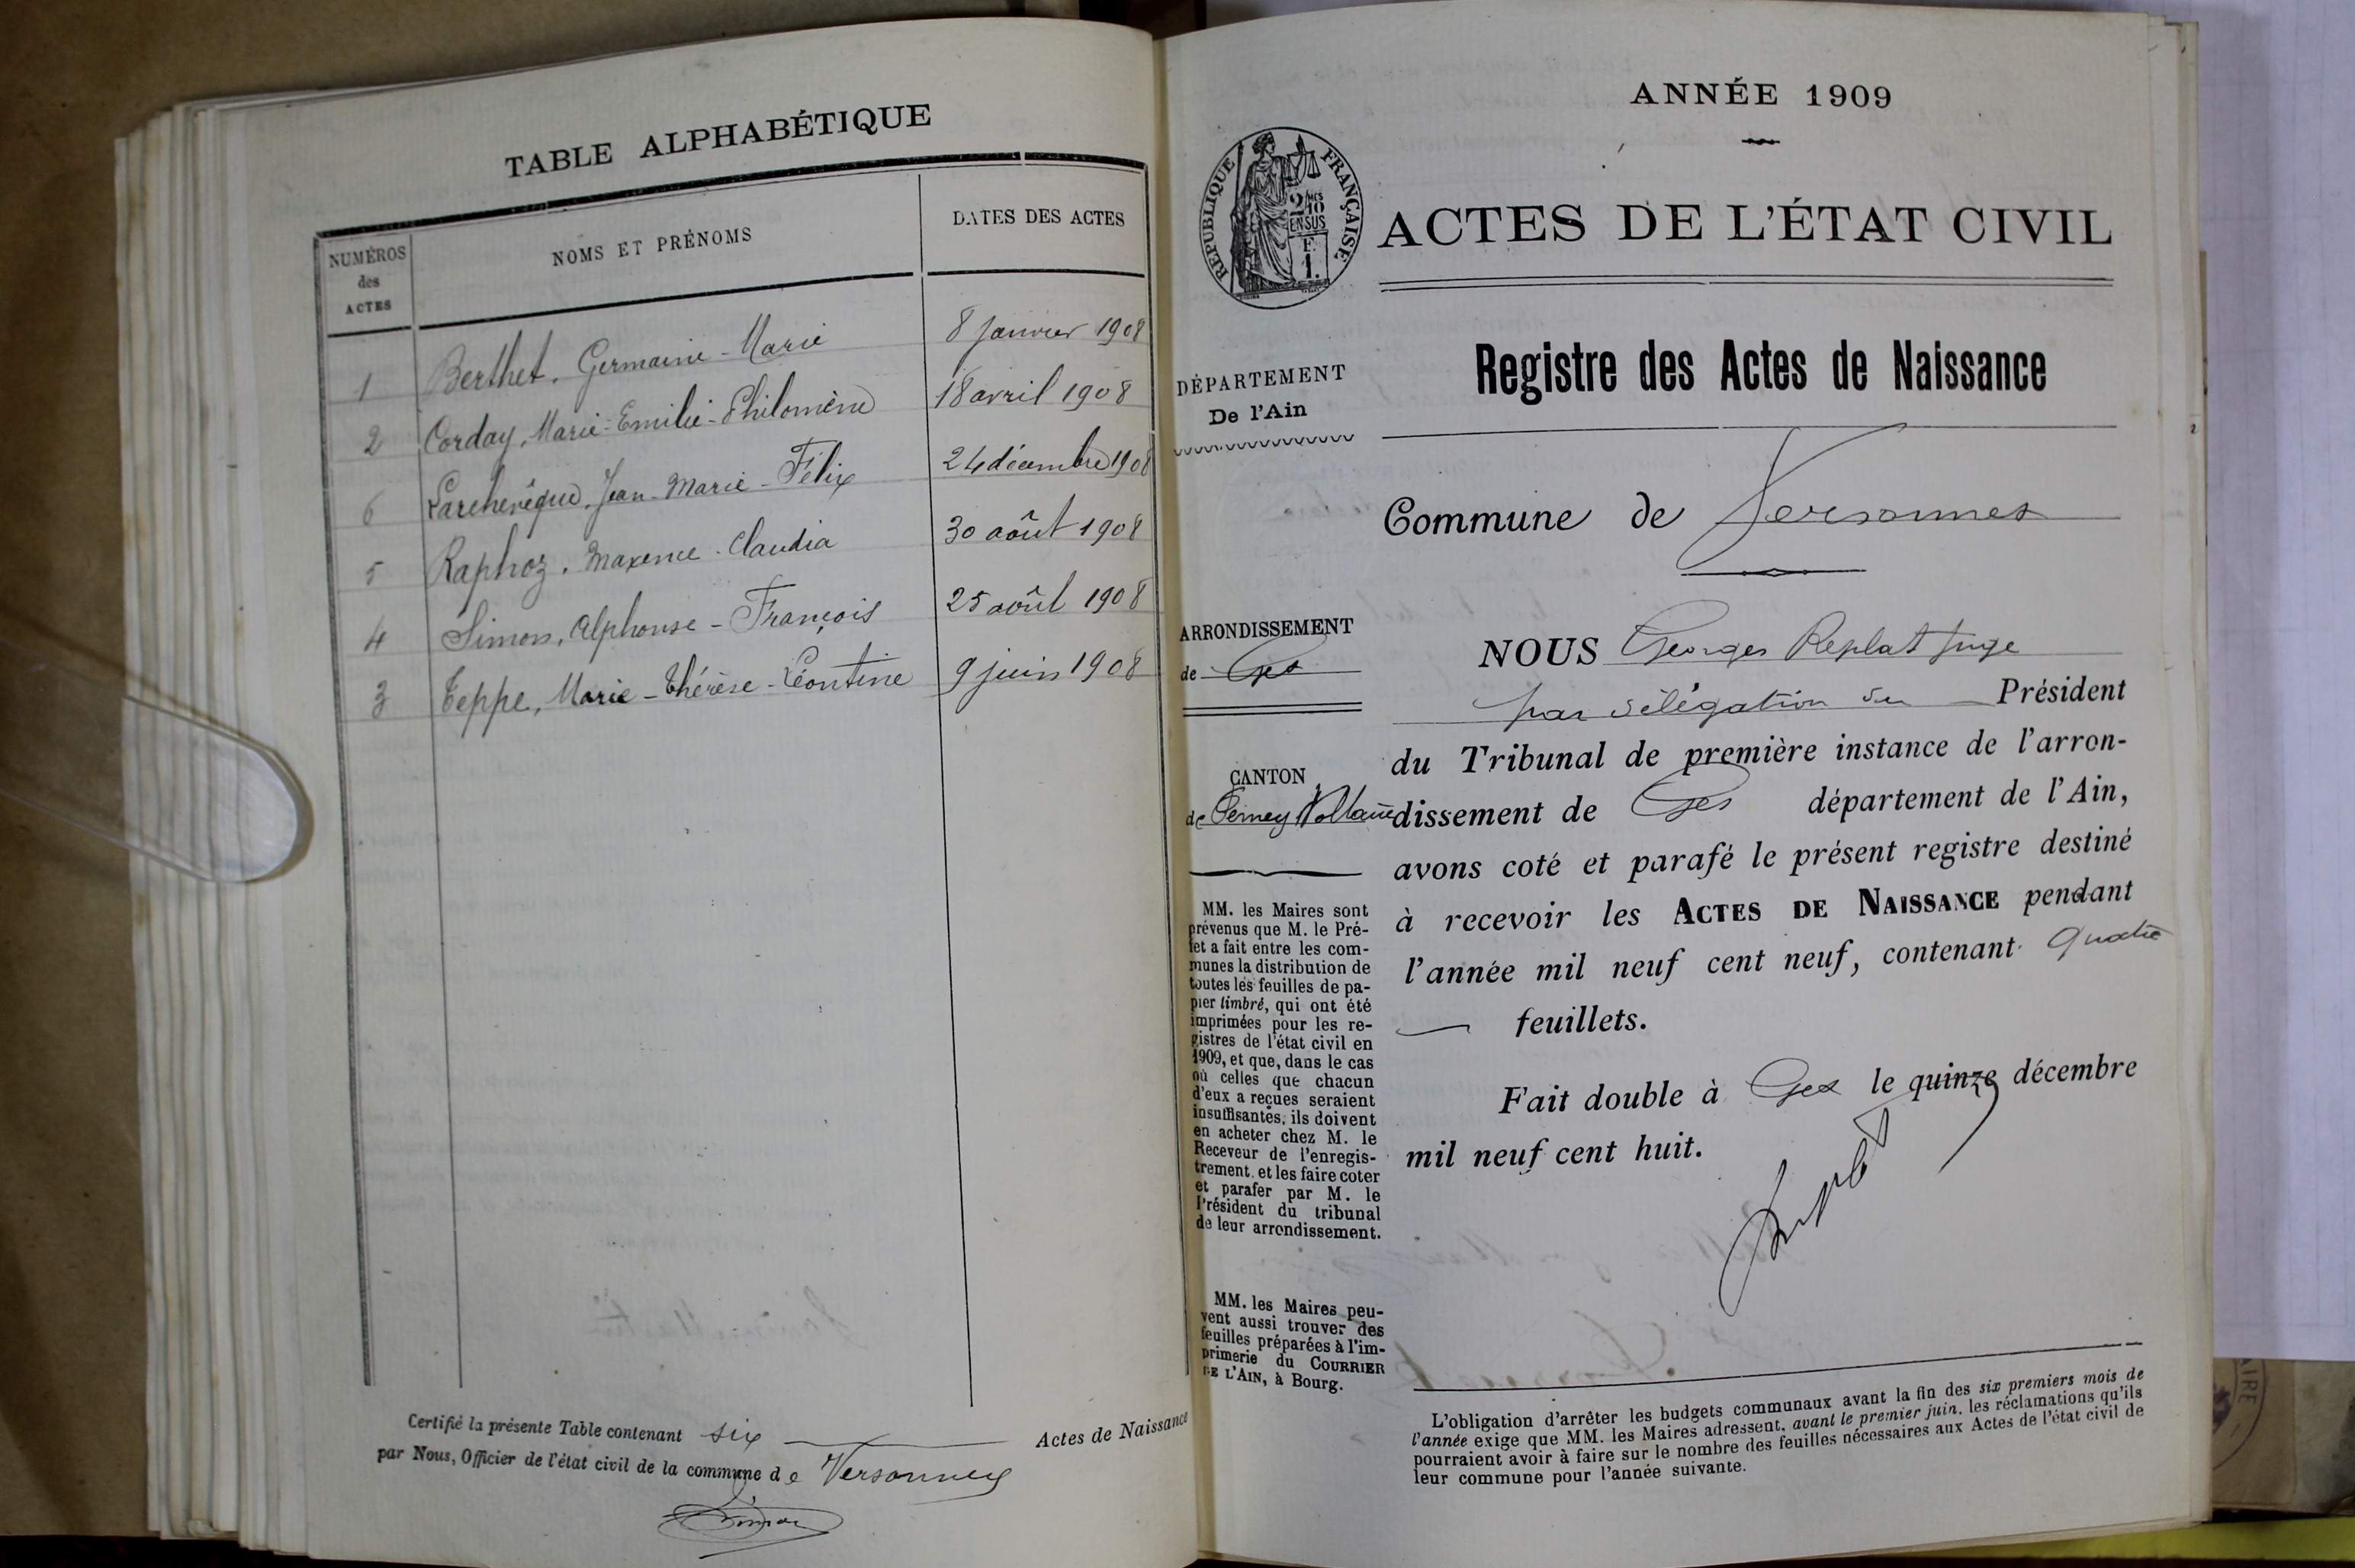 TABLE ALPHABÉTIQUE
NUMÉROS
des
ACTES
NOMS ET PRÉNOMS
DATES DES ACTES
1 Berthet, Germaine-Marie 8 Janvier 1908
2 Corday, Marie-Emilie-Philomène 18 avril 1908
6 Larchevêque, Jean-Marie-Félix 24 décembre 1908
5 Raphoz, Maxence-Claudia 30 août 1908
4 Simon, Alphonse-François 25 août 1908
3 Teppe, Marie-Thérèse-Léontine 9 juin 1908
Certifié la présente Table contenant six Actes de Naissance
par Nous, Officier de l'état civil de la commune de Versonnex
ANNÉE 1909
RÉPUBLIQUE FRANÇAISE
2/10
EN SUS
F
1.
ACTES DE L'ÉTAT CIVIL
Registre des Actes de Naissance
DÉPARTEMENT
De l'Ain
Commune de Versonnex
ARRONDISSEMENT
de Gex
CANTON
de Ferney Voltaire
MM. les Maires sont
prévenus que M. le Pré-
fet a fait entre les com-
munes la distribution de
toutes les feuilles de pa-
pier timbré, qui ont été
imprimées pour les re-
gistres de l'état civil en
1909, et que, dans le cas
où celles que chacun
d'eux a reçues seraient
insuffisantes, ils doivent
en acheter chez M. le
Receveur de l'enregis-
trement, et les faire coter
et parafer par M. le
Président du tribunal
de leur arrondissement.
MM. les Maires peu-
vent aussi trouver des
feuilles préparées à l'im-
primerie du COURRIER
DE L'AIN, à Bourg.
NOUS Georges Replat juge
par délégation du Président
du Tribunal de première instance de l'arron-
dissement de Gex département de l'Ain,
avons coté et parafé le présent registre destiné
à recevoir les ACTES DE NAISSANCE pendant
l'année mil neuf cent neuf, contenant quatre
feuillets.
Fait double à Gex le quinze décembre
mil neuf cent huit.
Replat
L'obligation d'arrêter les budgets communaux avant la fin des six premiers mois de
l'année exige que MM. les Maires adressent, avant le premier juin, les réclamations qu'ils
pourraient avoir à faire sur le nombre des feuilles nécessaires aux Actes de l'état civil de
leur commune pour l'année suivante.